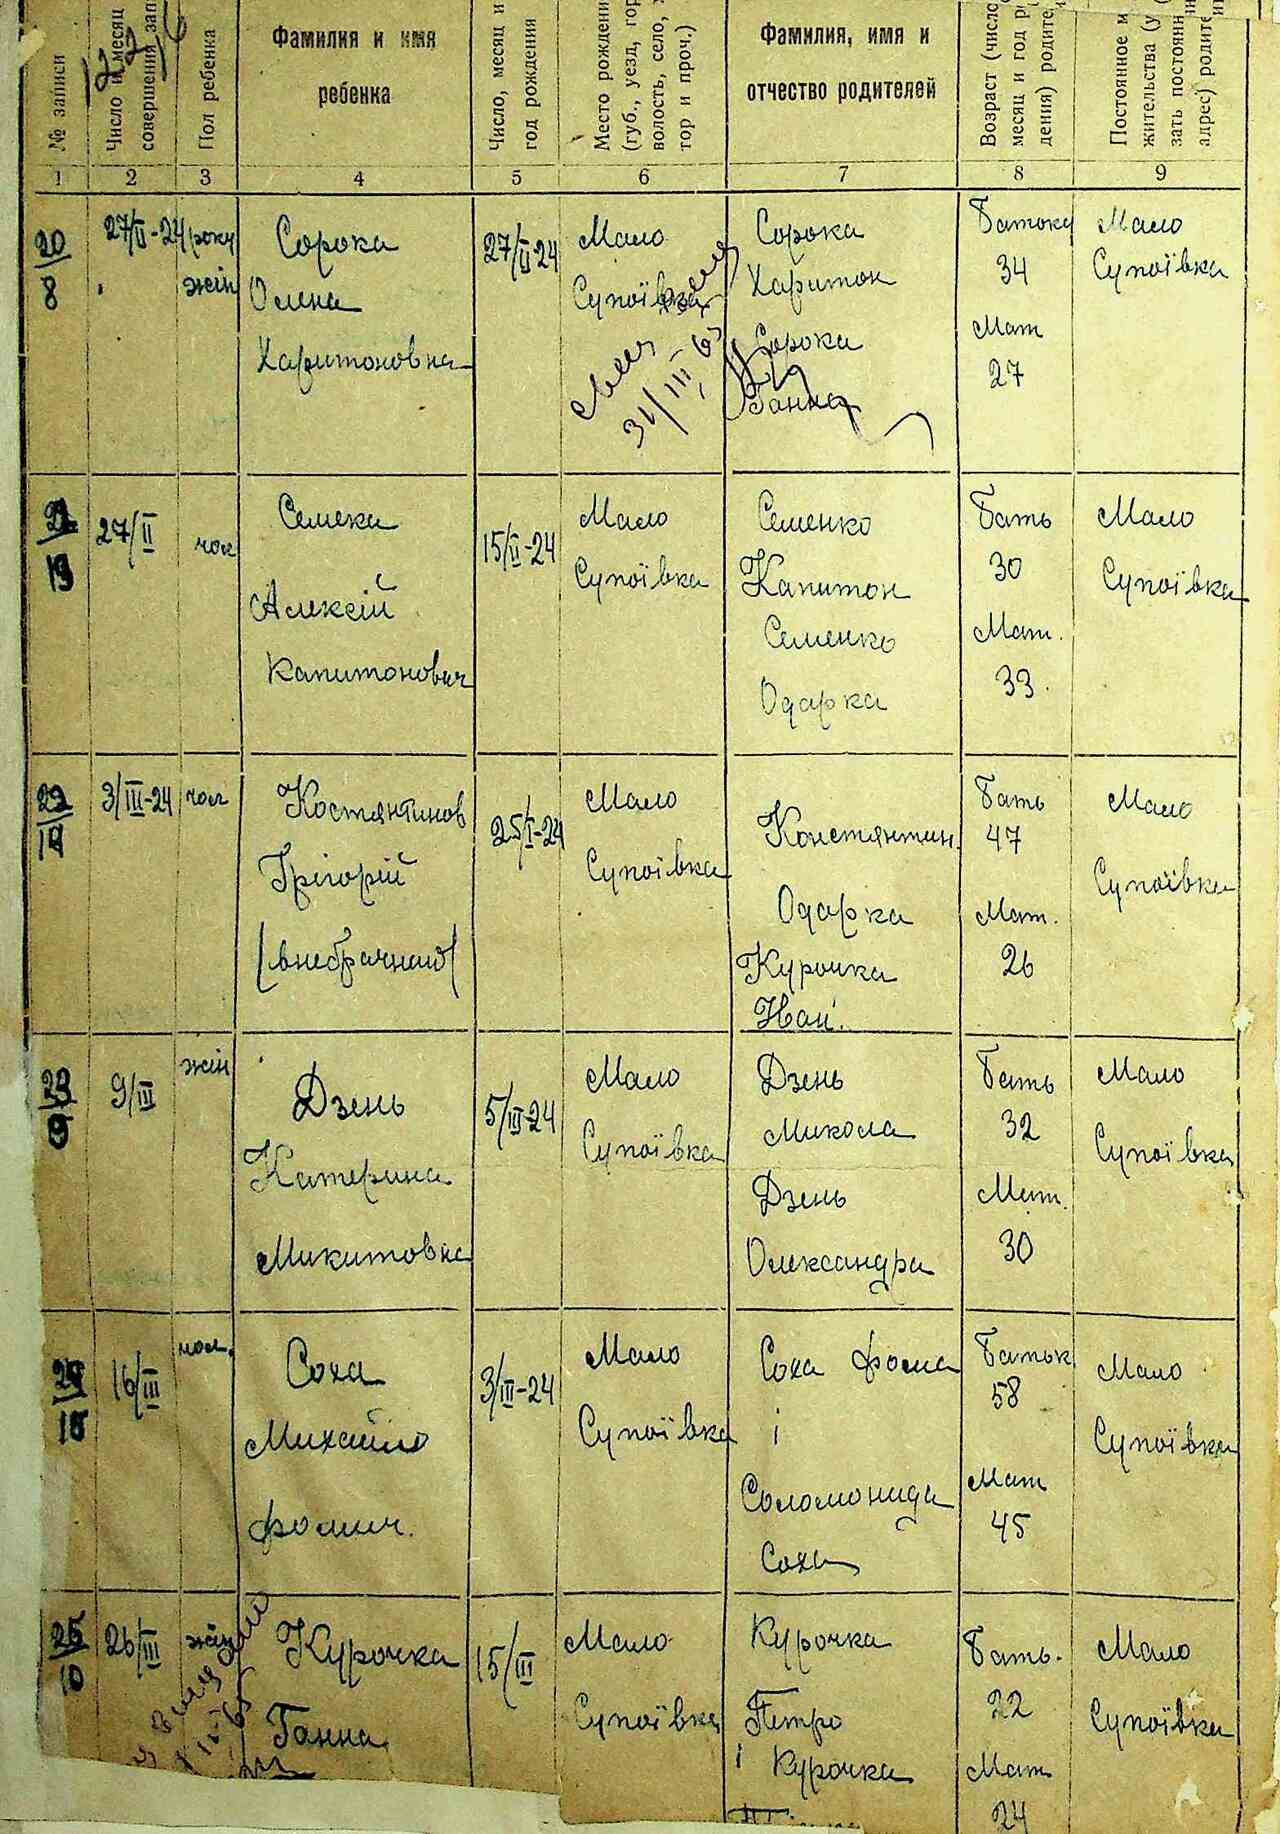 № записи
Число и месяц
совершения зап
Пол ребенка
Фамилия и имя
ребенка
Число, месяц и
год рождения
Место рождени
(губ., уезд, гор
волость, село, х
тор и проч.)
Фамилия, имя и
отчество родителей
Возраст (число
месяц и год р
дения) родите
Постоянное м
жительства (у
зать постоянн
адрес) родите
1 2 3 4 5 6 7 8 9
20/8
27/II-24 року
жін
Сорока
Олена
Харитоновна
27/II-24
Мало
Супоївка
31/III-65
Сорока
Харитон
Сорока
Ганна
Батоку
34
Мат
27
Мало
Супоївка
27/II
чол
Семека
Алексій
Капитонович
15/II-24
Мало
Супоївка
Семенко
Капитон
Семенко
Одарка
Бать
30
Мат.
33.
Мало
Супоївка
3/III-24
чол
Костянтинов
Грігорій
(внебрачный)
25/I-24
Мало
Супоївка
Констянтин.
Одарка
Курочка
Іван.
Бать
47
Мат.
26
Мало
Супоївка
23/9
9/III
жін
Дзень
Катерина
Микитовна
5/III-24
Мало
Супоївка
Дзень
Микола
Дзень
Олександра
Бать
32
Мат.
30
Мало
Супоївка
16/III
чол.
Соха
Михайло
Фомич.
3/III-24
Мало
Супоївка
Соха Фома
і
Соломонида
Соха
Батьк
58
Мат
45
Мало
Супоївка
25/10
26/III
жін
Курочка
Ганна
15/III
Мало
Супоївка
Курочка
Петро
і Курочка
Бать.
22
Мат
24
Мало
Супоївка